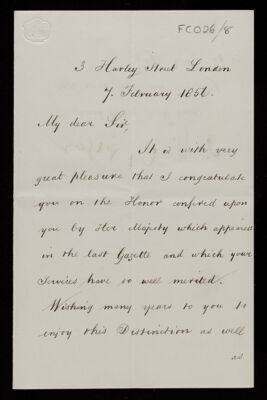 FCO26/8
3 Harley Street London
7. February 1856.
My dear Sir,
It is with very
great pleasure that I congratulate
you on the Honor confered upon
you by Her Majesty which appeared
in the last Gazette and which your
Services have so well merited.
Wishing many years to you to
enjoy this Distinction as well
as